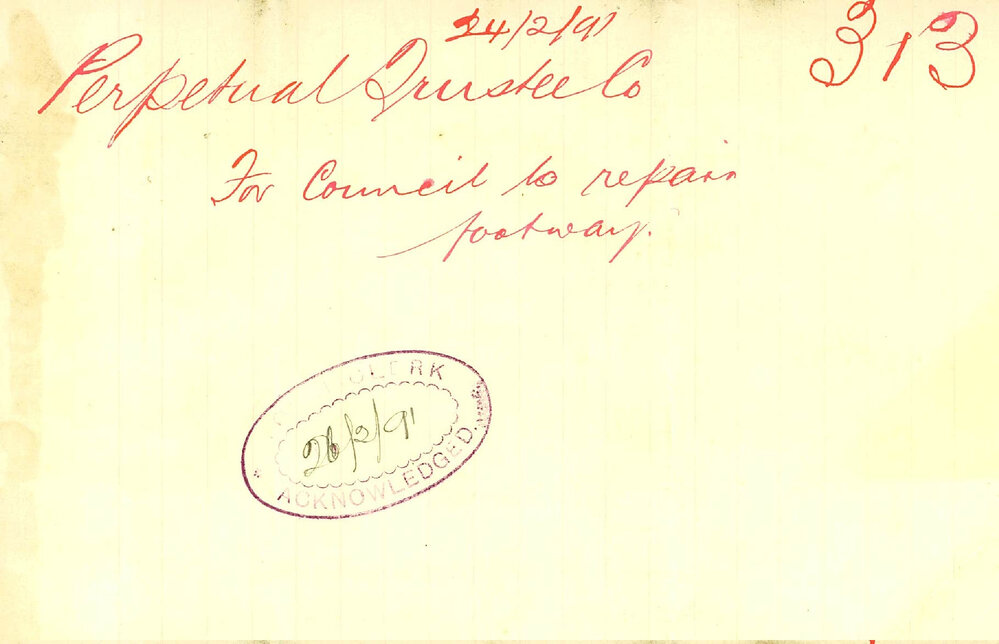 24/2/91
313
Perpetual Trustee Co
For Council to repair
footway.
CLERK
26/2/91
ACKNOWLEDGED.